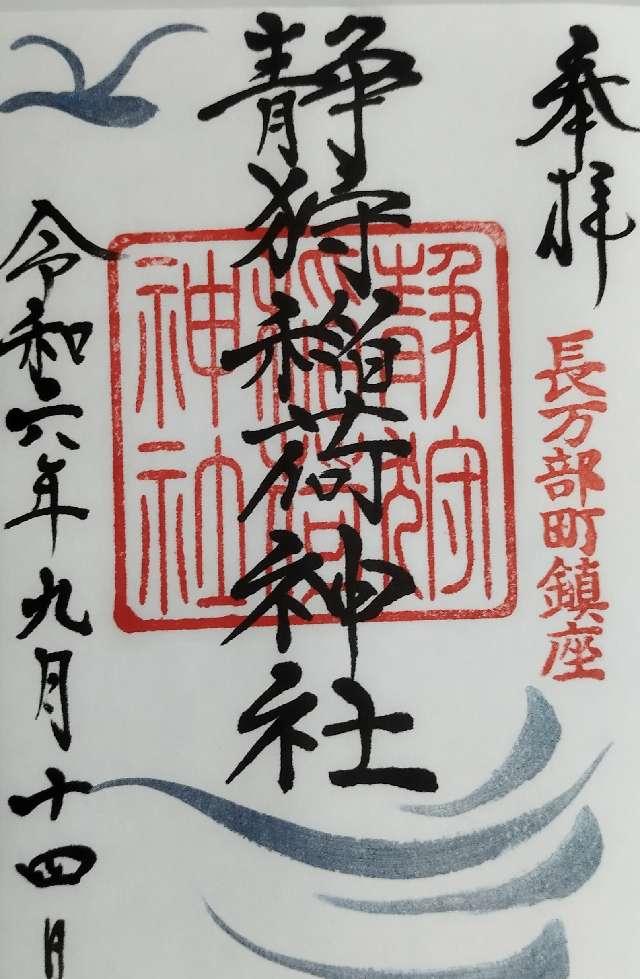 奉拝
長万部町鎮座
静狩稲荷神社
静狩
稲荷
神社
令和六年九月十四日